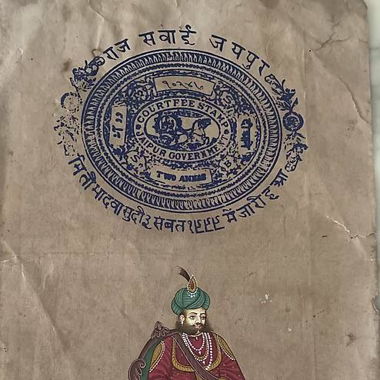 राज सवाई जयपुर
COURT FEE STAMP
JAIPUR GOVERNMENT
TWO ANNAS
मिती भादवा सुदी ३ संबत १९९९ में जारी हुआ